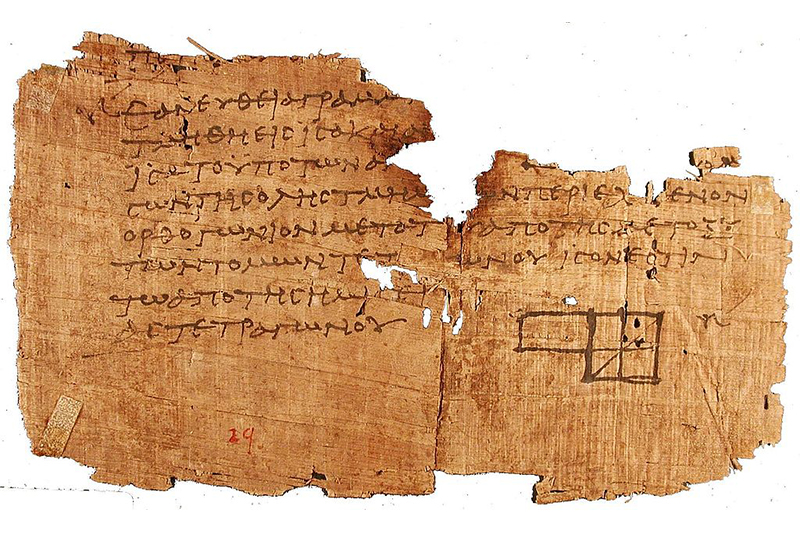 ΕΑΝ ΕΥΘΕΙΑ ΓΡΑΜΜ
ΤΜΗΘΗ ΕΙϹ ΙϹΑ ΚΑΙ
ΙϹΑ ΤΟ ΥΠΟ ΤΩΝ Α
ϹΩΝ ΤΗϹ ΟΛΗϹ ΤΜΗΜ ΩΝ ΠΕΡΙΕΧ ΜΕΝΟΝ
ΟΡΘΟΓΩΝΙΟΝ ΜΕΤΑ ΤΟΥ ΑΠΟ ΤΗϹ ΜΕΤΟΞΥ
ΤΩΝ ΤΟΜΩΝ ΤΕΤ ΩΝΟΥ ΙϹΟΝ ΕϹΤΙΝ
ΤΩ ΑΠΟ ΤΗϹ ΗΜΙϹΕΙ
ΑϹ ΤΕΤΡΑΓΩΝΟΥ
29